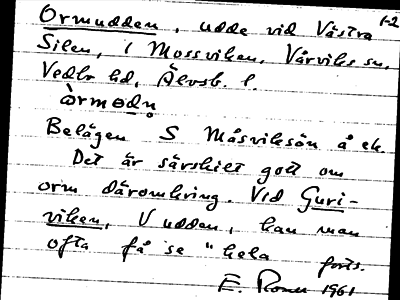 1-2
Ormudden, udde vid Västra
Silen, i Mossviken, Vårviks sn,
Vedbo hd, Älvsb. l.
òrmodn
Belägen S Måsviksön å ek.
Det är särskilt gott om
orm däromkring. Vid Guri-
viken, V udden, kan man
ofta få se "hela
forts.
E. Rosen 1961